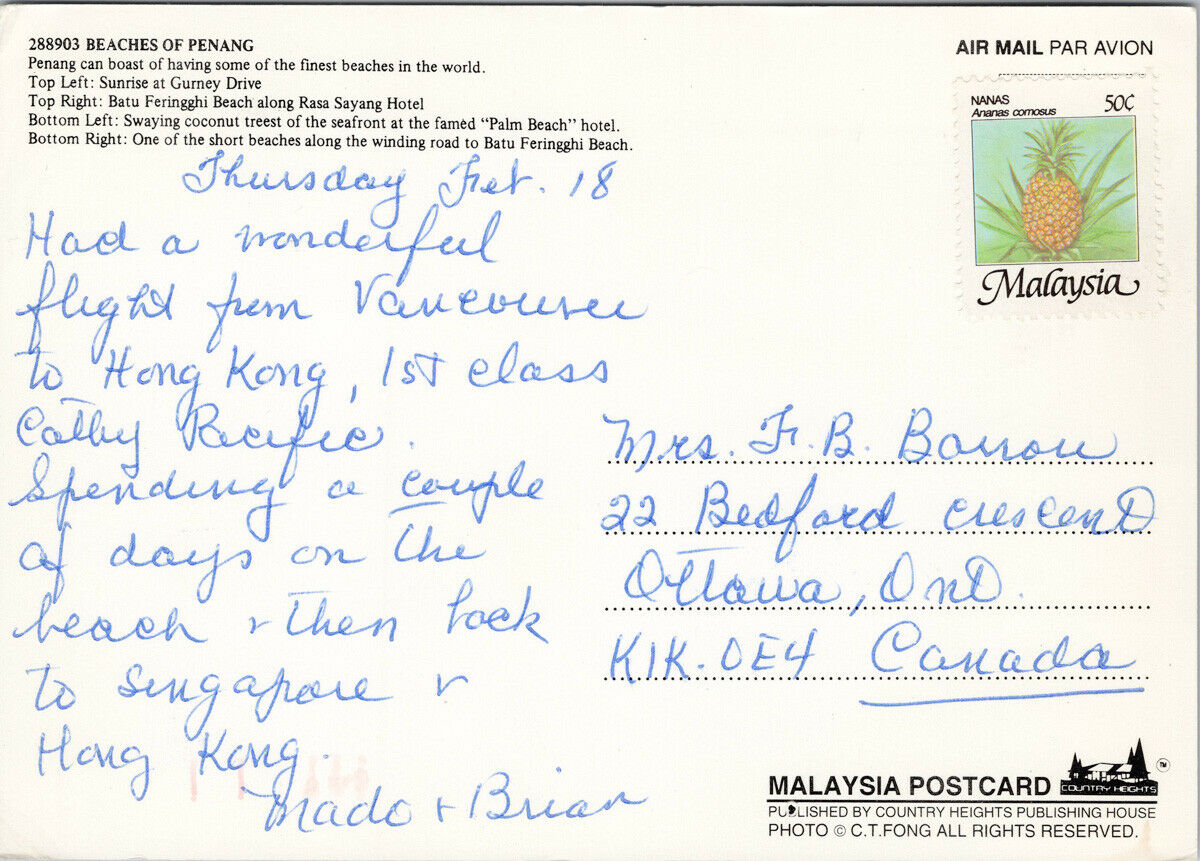 288903 BEACHES OF PENANG
Penang can boast of having some of the finest beaches in the world.
Top Left: Sunrise at Gurney Drive
Top Right: Batu Feringghi Beach along Rasa Sayang Hotel
Bottom Left: Swaying coconut treest of the seafront at the famèd "Palm Beach" hotel.
Bottom Right: One of the short beaches along the winding road to Batu Feringghi Beach.
AIR MAIL PAR AVION
NANAS 50¢
Ananas comosus
Malaysia
Thursday Feb. 18
Had a wonderful
flight from Vancouver
to Hong Kong, 1st class
Cathy Pacific.
Spending a couple
of days on the
beach & then back
to Singapore &
Hong Kong.
Mado + Brian
Mrs. F. B. Barrow
22 Bedford crescent
Ottawa, Ont.
K1K-0E4 Canada
MALAYSIA POSTCARD
COUNTRY HEIGHTS
TM
PUBLISHED BY COUNTRY HEIGHTS PUBLISHING HOUSE
PHOTO © C.T.FONG ALL RIGHTS RESERVED.